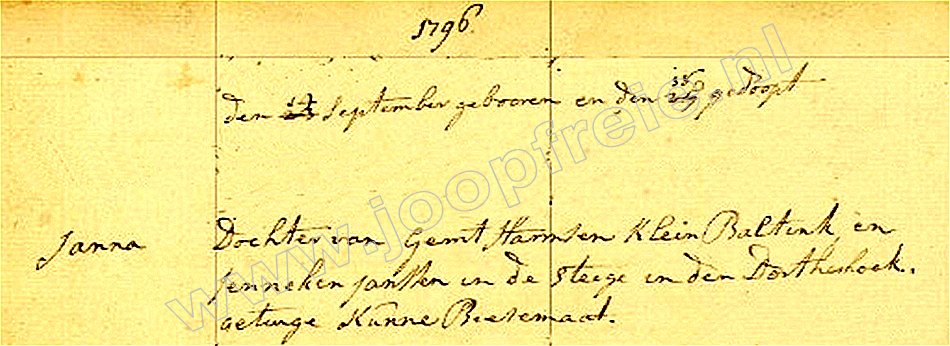 1796.
den September gebooren en den gedoopt
Janna
Dochter van Gerrit Harmsen Klein Baltink en
Jenneken Janssen in de Steege in den Dortherhoek.
getuige Kunne Bieremaat.
www.joopfreie.nl